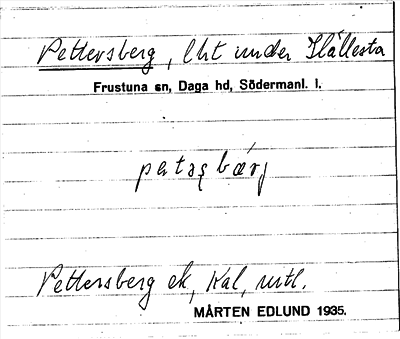 Pettersberg, lht under Hällesta
Frustuna sn, Daga hd, Södermanl. l.
Pettersberg ek, Kal, mtl.
MÅRTEN EDLUND 1935.